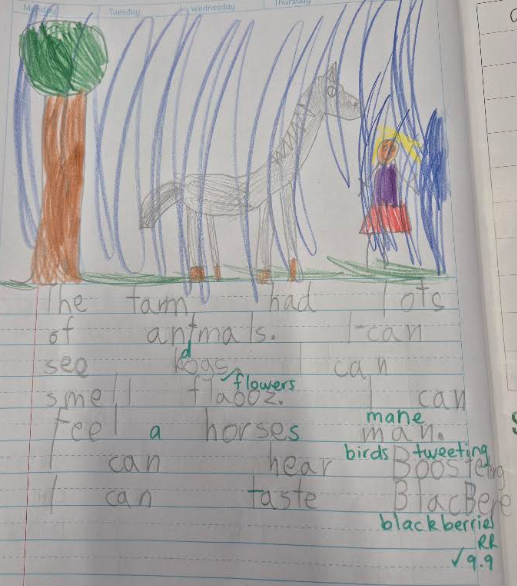 Tuesday Wednesday Thursday
The farm had lots
of animals. I can
d
see bogs. I can
flowers
smell flaooz. I can
mane
feel a horses man.
birds tweeting
I can hear
I can taste BlacBere
blackberries
RR
✓ 9.9